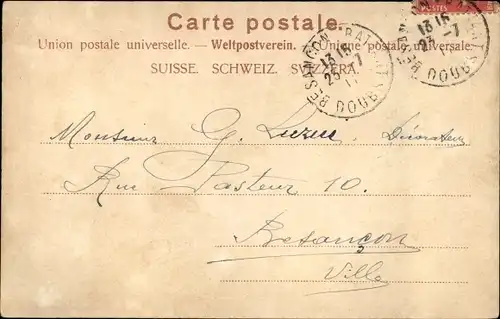 Carte postale.
Union postale universelle. — Weltpostverein. — Unione postale universale.
SUISSE. SCHWEIZ. SVIZZERA.
POSTES
BESANÇON
13 15
23 -7
DOUBS
13 15
23 -7
DOUBS
Monsieur G. Décorateur
Rue Pasteur 10.
Besançon
Ville